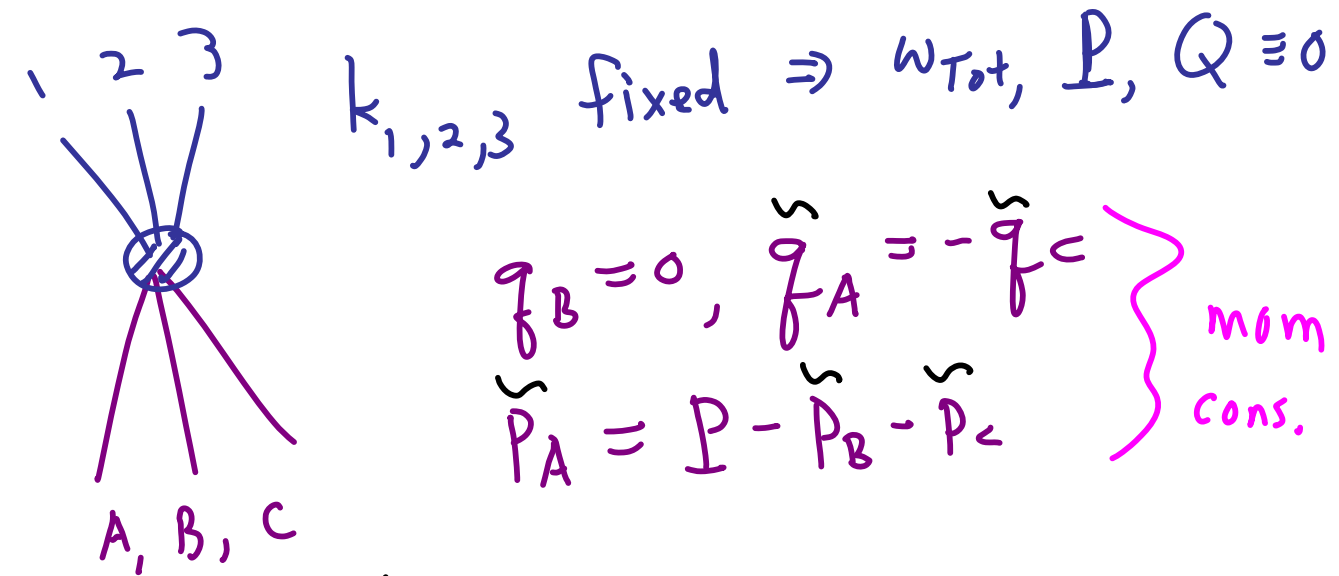 1 2 3
k_{1,2,3} fixed ⇒ ω_{Tot}, P, Q ≡ 0
q_B = 0, q̃_A = -q̃_C
p̃_A = P - p̃_B - p̃_C
mom
cons.
A, B, C